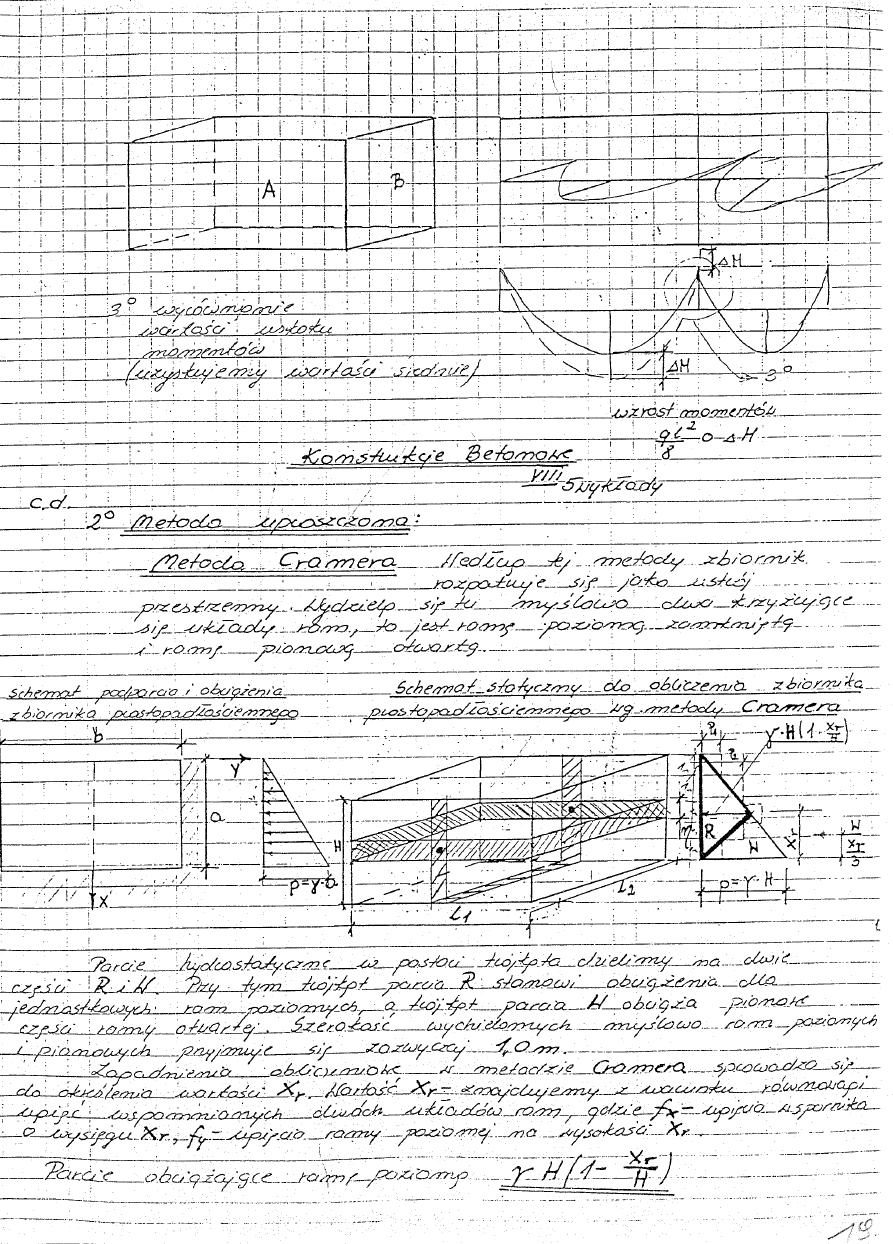 A
B
ΔM
3° wyrównanie
wartości uskoku
momentów
(uzyskujemy wartości średnie)
ΔM
3°
wzrost momentów
ql²/8 o ΔM
Konstrukcje Betonowe
VIII 5 wykłady
c.d.
2° Metoda uproszczona:
Metoda Cramera Według tej metody zbiornik
rozpatruje się jako ustrój
przestrzenny. Wydziela się tu myślowo dwa krzyżujące
się układy ram, to jest ramę poziomą zamkniętą
i ramę pionową otwartą.
Schemat podparcia i obciążenia
zbiornika prostopadłościennego
Schemat statyczny do obliczenia zbiornika
prostopadłościennego wg. metody Cramera
b
y
a
x
p=γ·a
H
L1
L2
R
W
γ·H(1-Xr/H)
Xr
p=γ·H
W
Xr/3
Parcie hydrostatyczne w postaci trójkąta dzielimy na dwie
części R i W. Przy tym trójkąt parcia R stanowi obciążenia dla
jednostkowych ram poziomych, a trójkąt parcia W obciąża pionowe
części ramy otwartej. Szerokość wychidomych myślowo ram poziomych
i pionowych przyjmuje się zazwyczaj 1,0 m.
Zagadnienia obliczeniowe w metodzie Cramera sprowadza się
do określenia wartości Xr. Wartość Xr - znajdujemy z warunku równowagi
ugięć wspomnianych dwóch układów ram, gdzie fx - ugięcia wspornika
o wysięgu Xr, fy - ugięcia ramy poziomej na wysokości Xr.
Parcie obciążające ramę poziomą γ H(1 - Xr/H)
19.